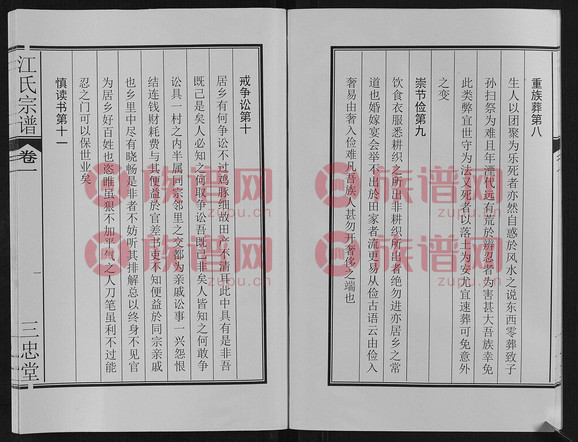 重族葬第八
生人以团聚为乐死者亦然自惑於风水之说东西零葬致子
孙扫祭为难且年湮代远有荒於辨忍者为害甚大吾族幸免
此类弊宜世守为法又死者以落土为安尤宜速葬可免意外
之变
崇节俭第九
饮食衣服悉耕织之所出非耕织所出者绝勿进亦居乡之常
道也婚嫁宴会举不出於田家者流更易从俭古语云由俭入
奢易由奢入俭难凡吾族人甚勿开奢侈之端也
戒争讼第十
居乡有何争讼不过鸡豚细故田产不清耳此中具有是非吾
既己是矣人必知之何取争讼吾既己非矣人皆知之何敢争
讼具一村之内半属同宗邻里之交都为亲戚讼事一兴怨恨
结连钱财耗费与其便益於官差书吏不知便益於同宗亲戚
也乡里中尽有晓畅是非者不妨听其排解总以终身不见官
为居乡好百姓也恣睢虽狠不加平气之人刀笔虽利不过能
忍之门可以保世业矣
慎读书第十一
江氏宗谱
卷一
一
三忠堂
族谱网
zupu.cn
族谱网
zupu.cn